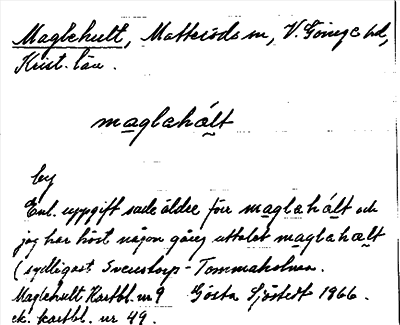 Maglehult, Matteröds sn, V. Göinge hd,
Krist. län.
maglahált
by
Enl. uppgift sade äldre förr maglahált och
jag har hört någon gång uttalet maglahalt
(sydligast Svenstorp - Tommaholmen.
Maglehult Kartbl. nr 9 Gösta Sjöstedt 1966.
ek. kartbl. nr 49.